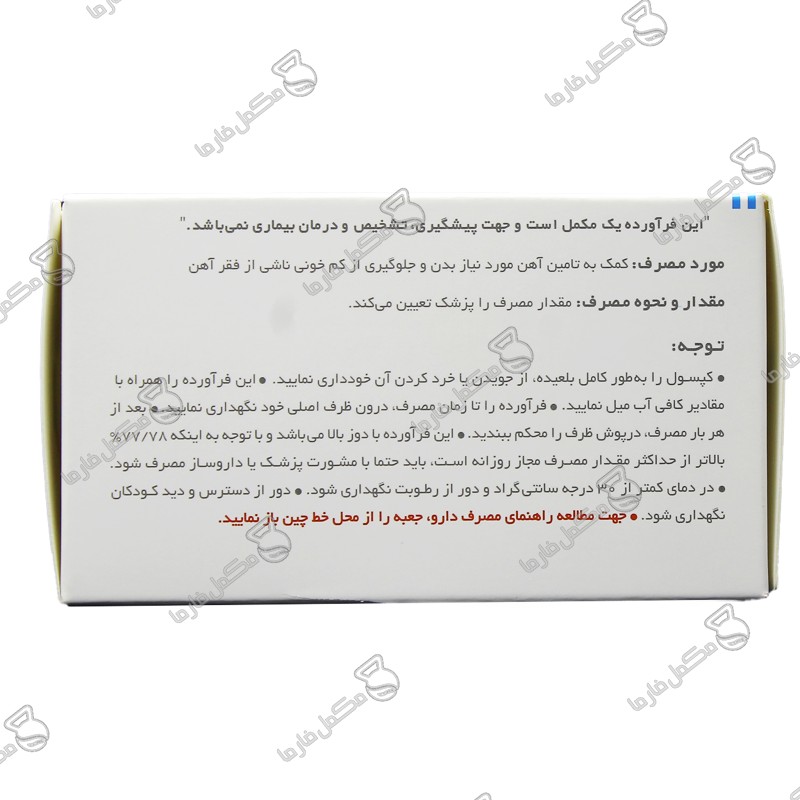 "این فرآورده یک مکمل است و جهت پیشگیری، تشخیص و درمان بیماری نمی‌باشد."
مورد مصرف: کمک به تامین آهن مورد نیاز بدن و جلوگیری از کم خونی ناشی از فقر آهن
مقدار و نحوه مصرف: مقدار مصرف را پزشک تعیین می‌کند.
توجه:
• کپسول را به‌طور کامل بلعیده، از جویدن یا خرد کردن آن خودداری نمایید. • این فرآورده را همراه با
مقادیر کافی آب میل نمایید. • فرآورده را تا زمان مصرف، درون ظرف اصلی خود نگهداری نمایید. • بعد از
هر بار مصرف، درپوش ظرف را محکم ببندید. • این فرآورده با دوز بالا می‌باشد و با توجه به اینکه ۷۷/۷۸%
بالاتر از حداکثر مقدار مصرف مجاز روزانه است، باید حتما با مشورت پزشک یا داروساز مصرف شود.
• در دمای کمتر از ۳۰ درجه سانتی‌گراد و دور از رطوبت نگهداری شود. • دور از دسترس و دید کودکان
نگهداری شود. • جهت مطالعه راهنمای مصرف دارو، جعبه را از محل خط چین باز نمایید.
مکمل فارما
مکمل فارما
مکمل فارما
مکمل فارما
مکمل فارما
مکمل فارما
مکمل فارما
مکمل فارما
مکمل فارما
مکمل فارما
مکمل فارما